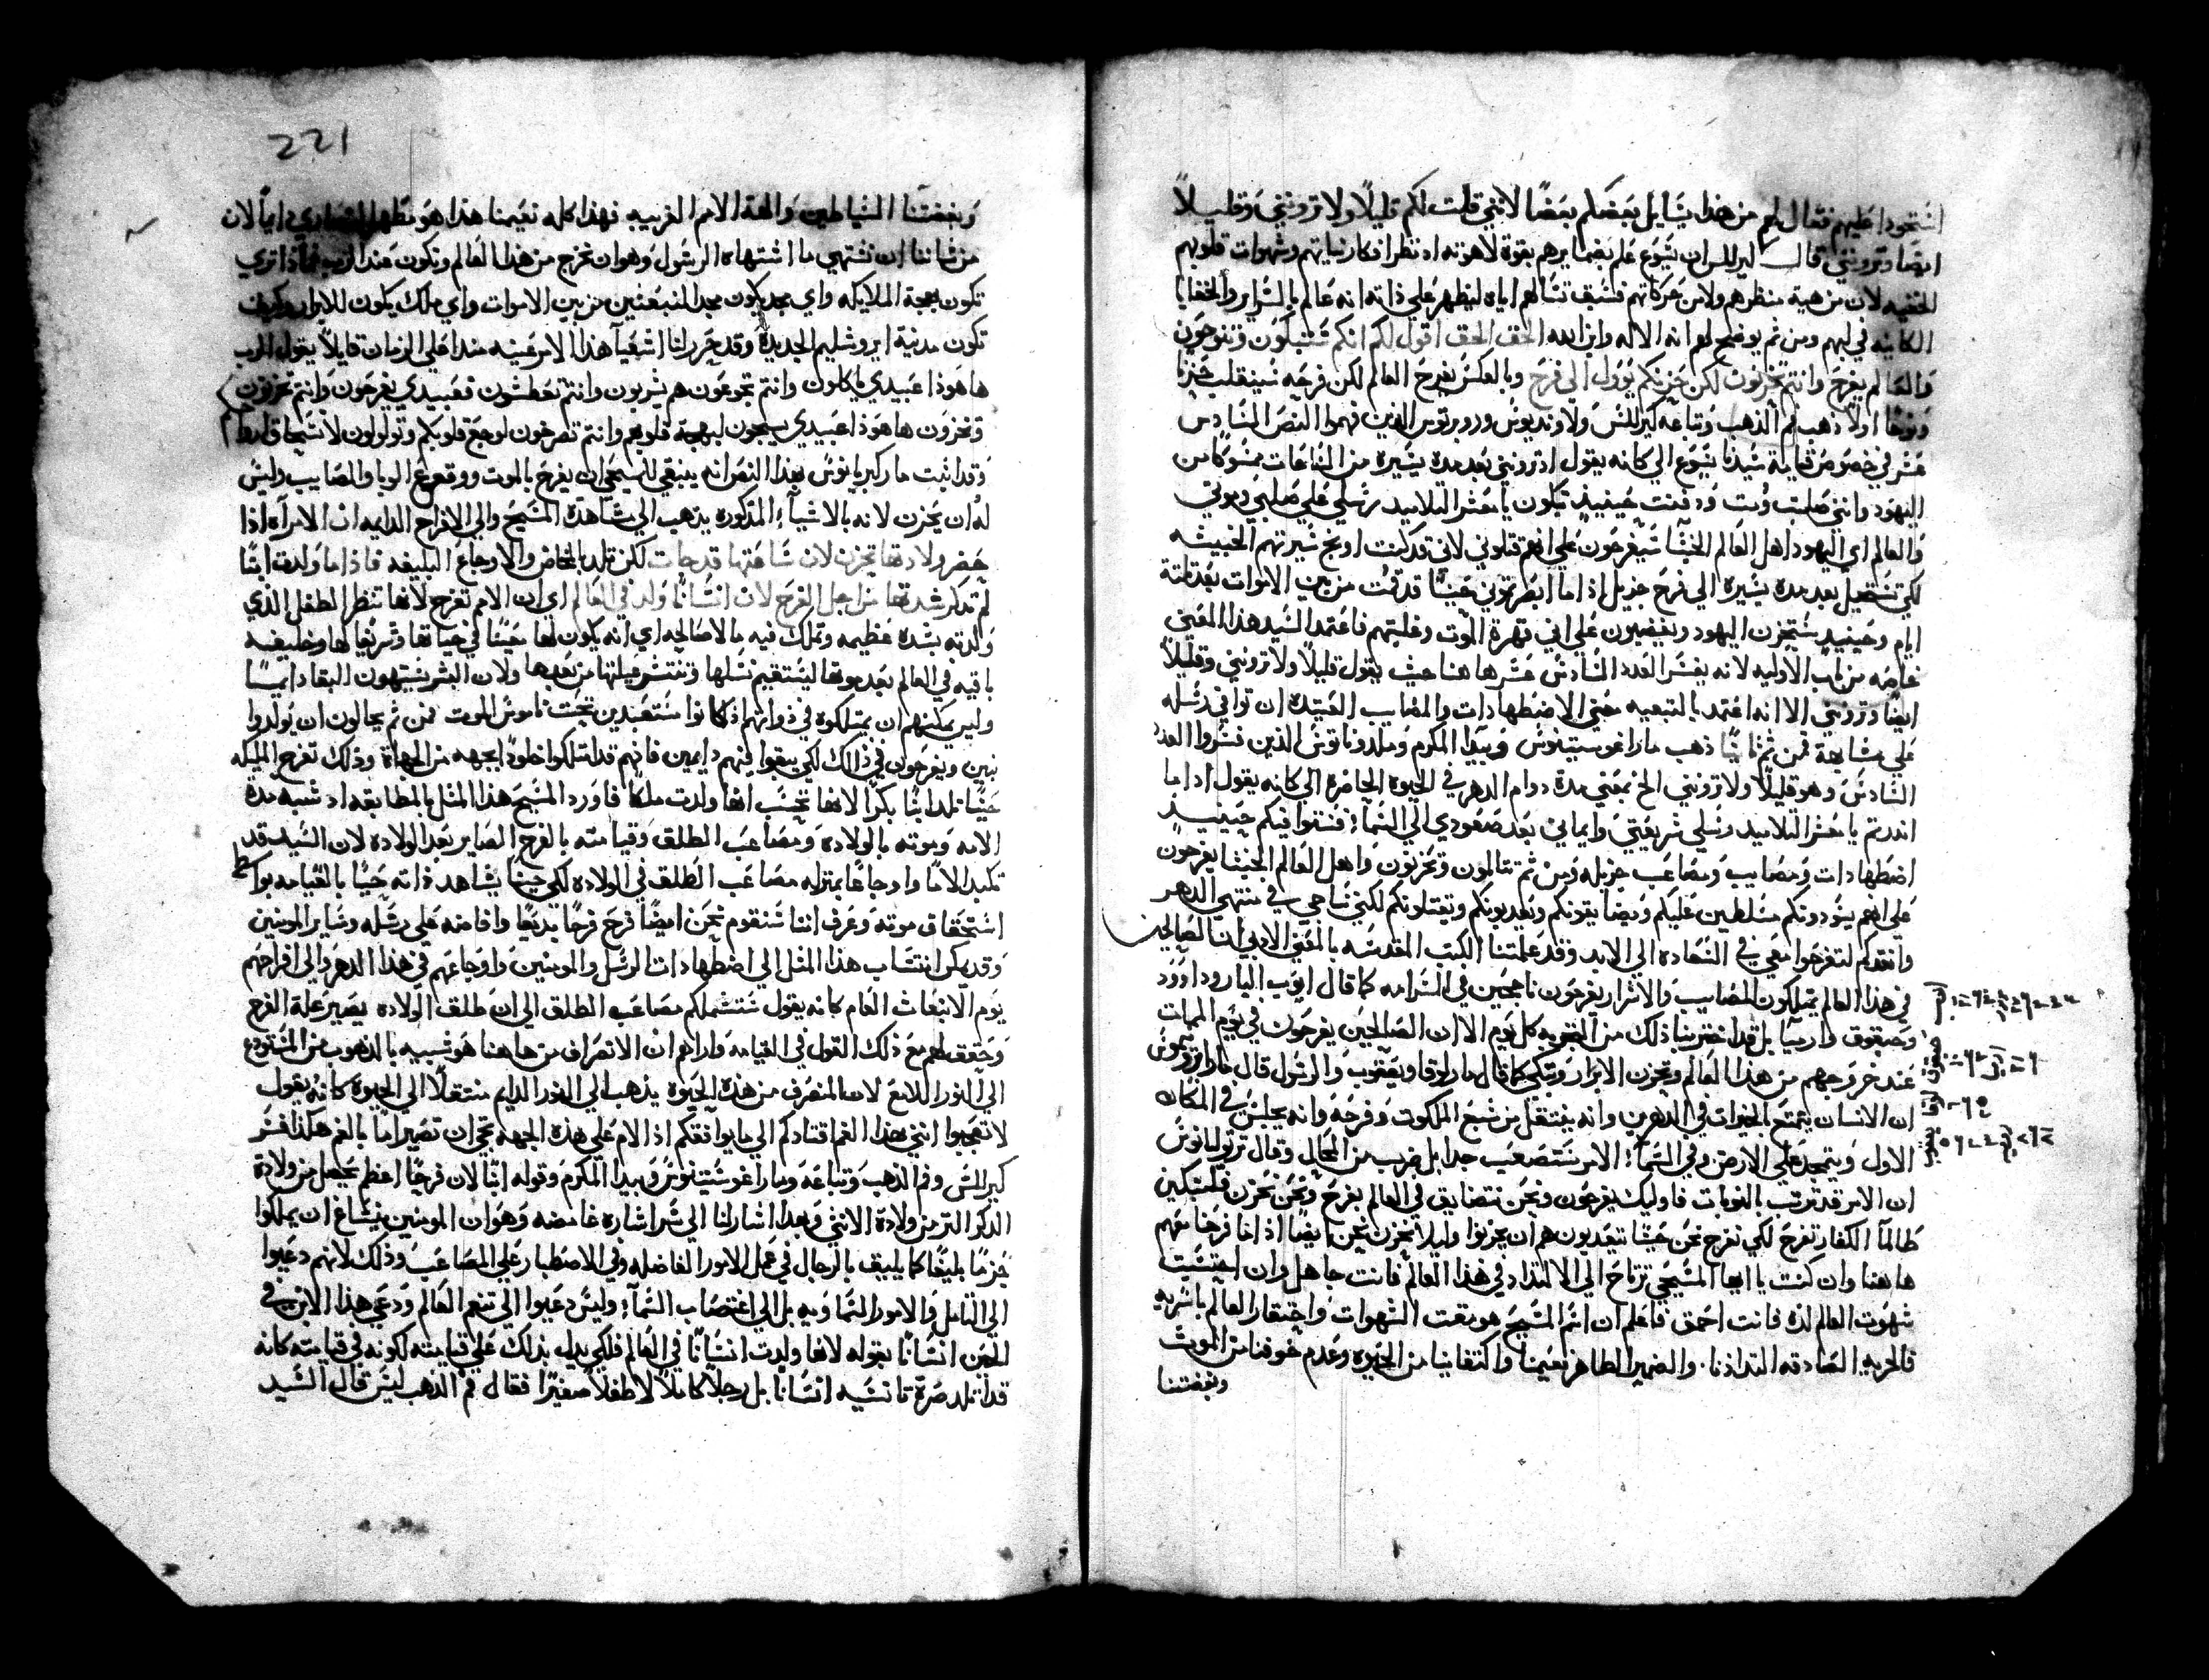 استحوذ عليهم فقال لهم من هذا يتسايل بعضكم بعضا لانني قلت لكم قليلا ولا ترونني وقليلا
ايضا وترونني قال كيرللس ان يسوع علم بضمايرهم بقوة لاهوته اذ نظر افكار نياتهم وشهوات قلوبهم
الخفيه لان من هية منظرهم ولا من حركاتهم فسبق تسالهم اياه ليظهر علي ذاته انه عالم بالسراير والخفايا
الكاينه في لبهم ومن ثم يوضح لهم انه الاله وابن الله الحق الحق اقول لكم انكم ستبكون وتنوحون
والعالم يفرح وانتم تحزنون لكن حزنكم يوول الي فرح وبالعكس يفرح العالم لكن فرحه سينقلب حزنا
ونوحا اولا ذهب فم الذهب وتباعه كيرللس ولاونديوس وروبرتوس الذين فهموا النص السادس
عشر في خصوص قيامة سيدنا يسوع الي كانه يقول اذ ترونني بعد مدة يسيره من الساعات ممسوكا من
اليهود وانني صلبت ومت ودفنت حينيذ تبكون يا معشر التلاميد رسلي علي صلبي وموتي
والعالم اي اليهود اهل العالم الخبثا سيفرحون علي انهم قتلوني لاني قد كنت اوبخ سيرتهم الخبيثه
لكن تستحيل بعد مدة يسيره الي فرح جزيل اذ اما ابصرتموني حيا قد قمت من بين الاموات بعد ثلثة
ايام وحينيد ستحزن اليهود ويغضبون علي اني قهرة الموت وغلبتهم فاعتمد السيد هذا المعني
خاصه من باب الاوليه لانه يفسر العدد السادس عشر ها هنا حيث يقول قليلا ولا ترونني وقليلا
ايضا وترونني الا انه اعتمد بالتبعيه معني الاضطهادات والمصايب العتيدة ان توافي رسله
علي مشابهة فمن ثم ثانيا ذهب مار اغوستينوس وبيدا المكرم وملدوناتوس الذين فسروا العدد
السادس وهو قليلا ولا ترونني الخ بمعني مدة دوام الدهر في الحيوة الحاضرة الي كانه يقول اذ اما
انذرتم يا معشر التلاميد رسلي شريعتي وايماني بعد صعودي الي السمآء فستوافيكم حينيد
اضطهادات ومصايب ومصاعب جزيله ومن ثم تتالمون وتحزنون واهل العالم الخبثا يفرحون
علي انهم يسودونكم مسلطين عليكم ويضايقونكم ويعذبونكم ويقتلونكم لكنني ساجي في منتهي الدهر
وانقذكم لتفرحوا معي في السعاده الي الابد وقد علمتنا الكتب المقدسه بالمعني الادبي ان الصالحين
في هذا العالم يمتلكون المصايب والاشرار يفرحون ناجحين في السرامه كما قال ايوب البار وداوود
وحبقوق وارميا بل قد اختبرنا ذلك من التجربه كل يوم الا ان الصالحين يفرحون في يوم الممات
عند خروجهم من هذا العالم وتحزن الابرار وتبكي كما قال مار لوقا ويعقوب والرسول قال مار ايرونيموس
ان الانسان يتمتع الخيرات في الدهرين وانه ينتقل من شبع الملكوت وفرحه وانه يجلس في المكان
الاول ويتمجد علي الارض وفي السمآء الامر نستصعب جدا بل ضرب من المحال وقال ترتوليانوس
ان الامر قد ترتب بالنوبات فاوليك يفرحون ونحن نتضايق في العالم يفرح ونحن نحزن فلنبكين
طالما الكفار تفرح لكي نفرح نحن حينما يتعدبون هم ان يحزنوا وليلا نحزن نحن ايضا اذ اما فرحنا معهم
هاهنا وان كنت يا ايها المسيحي ترتاح الي الالتداد في هذا العالم فانت جاهل وان احتسبت
شهوت العالم لذة فانت احمق فاعلم ان اسم المسيح هو مقت الشهوات واحتقار العالم باسره
فالحريه الصادقه التدادنا والضمير الطاهر نعيمنا واكتفانينا من الحيوه وعدم خوفنا من الموت
وبغضتنا
221
وبغضتنا الشياطين والهة الامم الغريبيه فهذا كله نعيمنا هذا هو مطهر النصاري دايما لان
من شاننا ان نشتهي ما اشتهاه الرسول وهو ان نخرج من هذا العالم ونكون عند الرب فماذا تري
تكون بهجة الملايكه واي مجد يكون مجد المنبعثين من بين الاموات واي ملك يكون للابرار وكيف
تكون مدنية ايروشليم الجديدة وقد حرر لنا اشعيا هذا الامر عينه منذ اعلي الزمان قايلا يقول الرب
ها هوذا عبيدي ياكلون وانتم تجوعون هم يشربون وانتم تعطشون فعبيدي يفرحون وانتم تحزنون
وتخزون ها هوذا عبيدي يسبحون لبهجة قلوبهم وانتم تصرخون لوجع قلوبكم وتولولون لانسحاق
وقد اثبت مار كبريانوس بهذا النص انه ينبغي للمسيحي ان يفرح بالموت ووقوع الوبا والمصايب وليس
له ان يحزن لانه بالاشيآء المذكوره يذهب الي مشاهدة المسيح والي الافراح الدايمه ان الامراه اذا
حضر ولادتها تحزن لان ساعتها قد جات لكن تلد بالمخاض والاوجاع البليغه فاذا ما ولدت ابنا
لم تذكر شدتها من اجل الفرح لان انسانا ولد في العالم اي ان الام تفرح لانها تنظر الطفل الذي
ولدته بشده عظيمه وتملك فيه مالا صالحه اي انه يكون لها معينا في حياتها وشريفا لها وخليفه
باقيه في العالم بعد موتها ليستقيم نسلها وتنتشر عيلتها من بعدها ولان البشر يشتهون البقا دايما
وليس يمكنهم ان يمتلكوه في ذواتهم اذ كانوا مستعبدين تحت ناموس الموت فمن ثم يحالون ان يولدوا
بنين ويفرحون في ذالك لكي يبقوا فيهم دايمين فانهم قد امتلكوا خلودا بجهه من الجهاة وذلك تفرح الملكه
حينما تلد ابنا بكرا لانها تحتسب انها ولدت ملكا فاورد المسيح هذا المثل بالمطابقه اذ شبه مدة
الامه وموته بالولاده ومصاعب الطلق وقيامته بالفرح الصاير بعد الولاده لان السيد قد
تكبد الاما واوجاعا بمنزله مصاعب الطلق في الولاده لكي حينما يشاهد ذاته حيا بالقيامه بواسطة
استحقاق موته وعرف اننا سنقوم نحن ايضا فرح فرحا بديعا وافاضه علي رسله وساير المومنين
وقد يمكن انتساب هذا المثل الي اضطهادات الرسل والمومنين واوجاعهم في هذا الدهر والي افراحهم
يوم الانبعاث العام كانه يقول ستشملكم مصاعب الطلق الي ان طلق الولاده يصير علة الفرح
وحقق لهم مع ذلك القول في القيامه واراهم ان الانصراف من هاهنا هو شبيه بالذهوب من المستودع
الي النور اللامع لان المنصرف من هذه الحيوه يذهب الي النور الدايم منتقلا الي الحيوه كانه يقول
لا تعجبوا انني بهذا الغم اقتادكم الي ما يوافقكم اذ الام علي هذه الجهه تجي ان تصير اما بالغم هكذا فسر
كيرللس وفم الذهب وتباعه ومار اغوستينوس وبيدا المكرم وقوله ابنا لان فرحا اعظم يحصل من ولادة
الذكر اكتر من ولادة الانثي وبهذا اشار لنا الي سر اشاره غامضه وهو ان المومنين ينساغ ان يملكوا
حزما بليغا كما يليق بالرجال في عمل الامور الفاضله وفي الاصطبار علي المصاعب وذلك لانهم دعيوا
الي التامل والامور السماويه بل الي اغتصاب السمآء وليس دعيوا الي تنعم العالم ودعي هذا الابن في
المتن انسانا بقوله لانها ولدت انسانا في العالم فلكي يدل بذلك علي قيامته لكونه في قيامته كانه
قد اتلد مرة تانيه انسانا بل رجلا كاملا لا طفلا صغيرا فقال فم الذهب ليس قال السيد